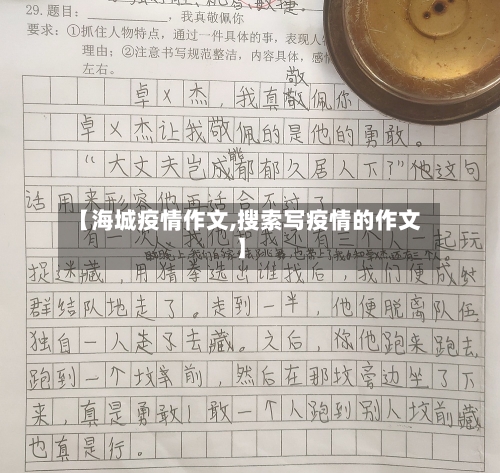 29.题目:____________,我真敬佩你
要求:①抓住人物特点,通过一件具体的事,表现人
理由;②注意书写规范整洁,内容具体,感情
左右。
敬
卓×杰,我真敬佩你
卓×杰让我敬佩的是他的勇敢。
“大丈夫岂成郁郁久居人下?”他这句
能
话用来形容他再适合不过了
【海城疫情作文,搜索写疫情的作文
】
有一次,我他 我还有三个人一起玩
捉迷藏,用猜拳选出谁找后,我们便成
群结队地走了。走到一半,他便脱离队伍
独自一人走了去藏。之后,你他跑来跑去,
跑到一个坟 前,然后在那坟旁边坐了下
来,真是勇敢!敢一个人跑到别人坟前藏
也真是行。